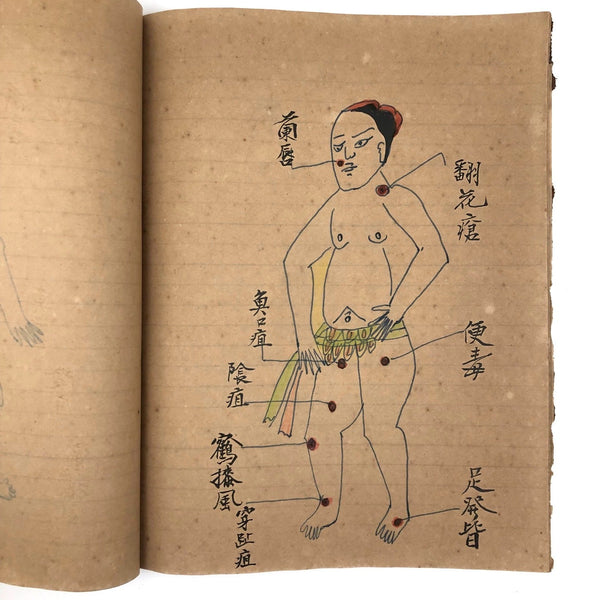 唇
翻花瘡
魚口疽
便毒
陰疽
鶴膝風
足發皆
穿趾疽